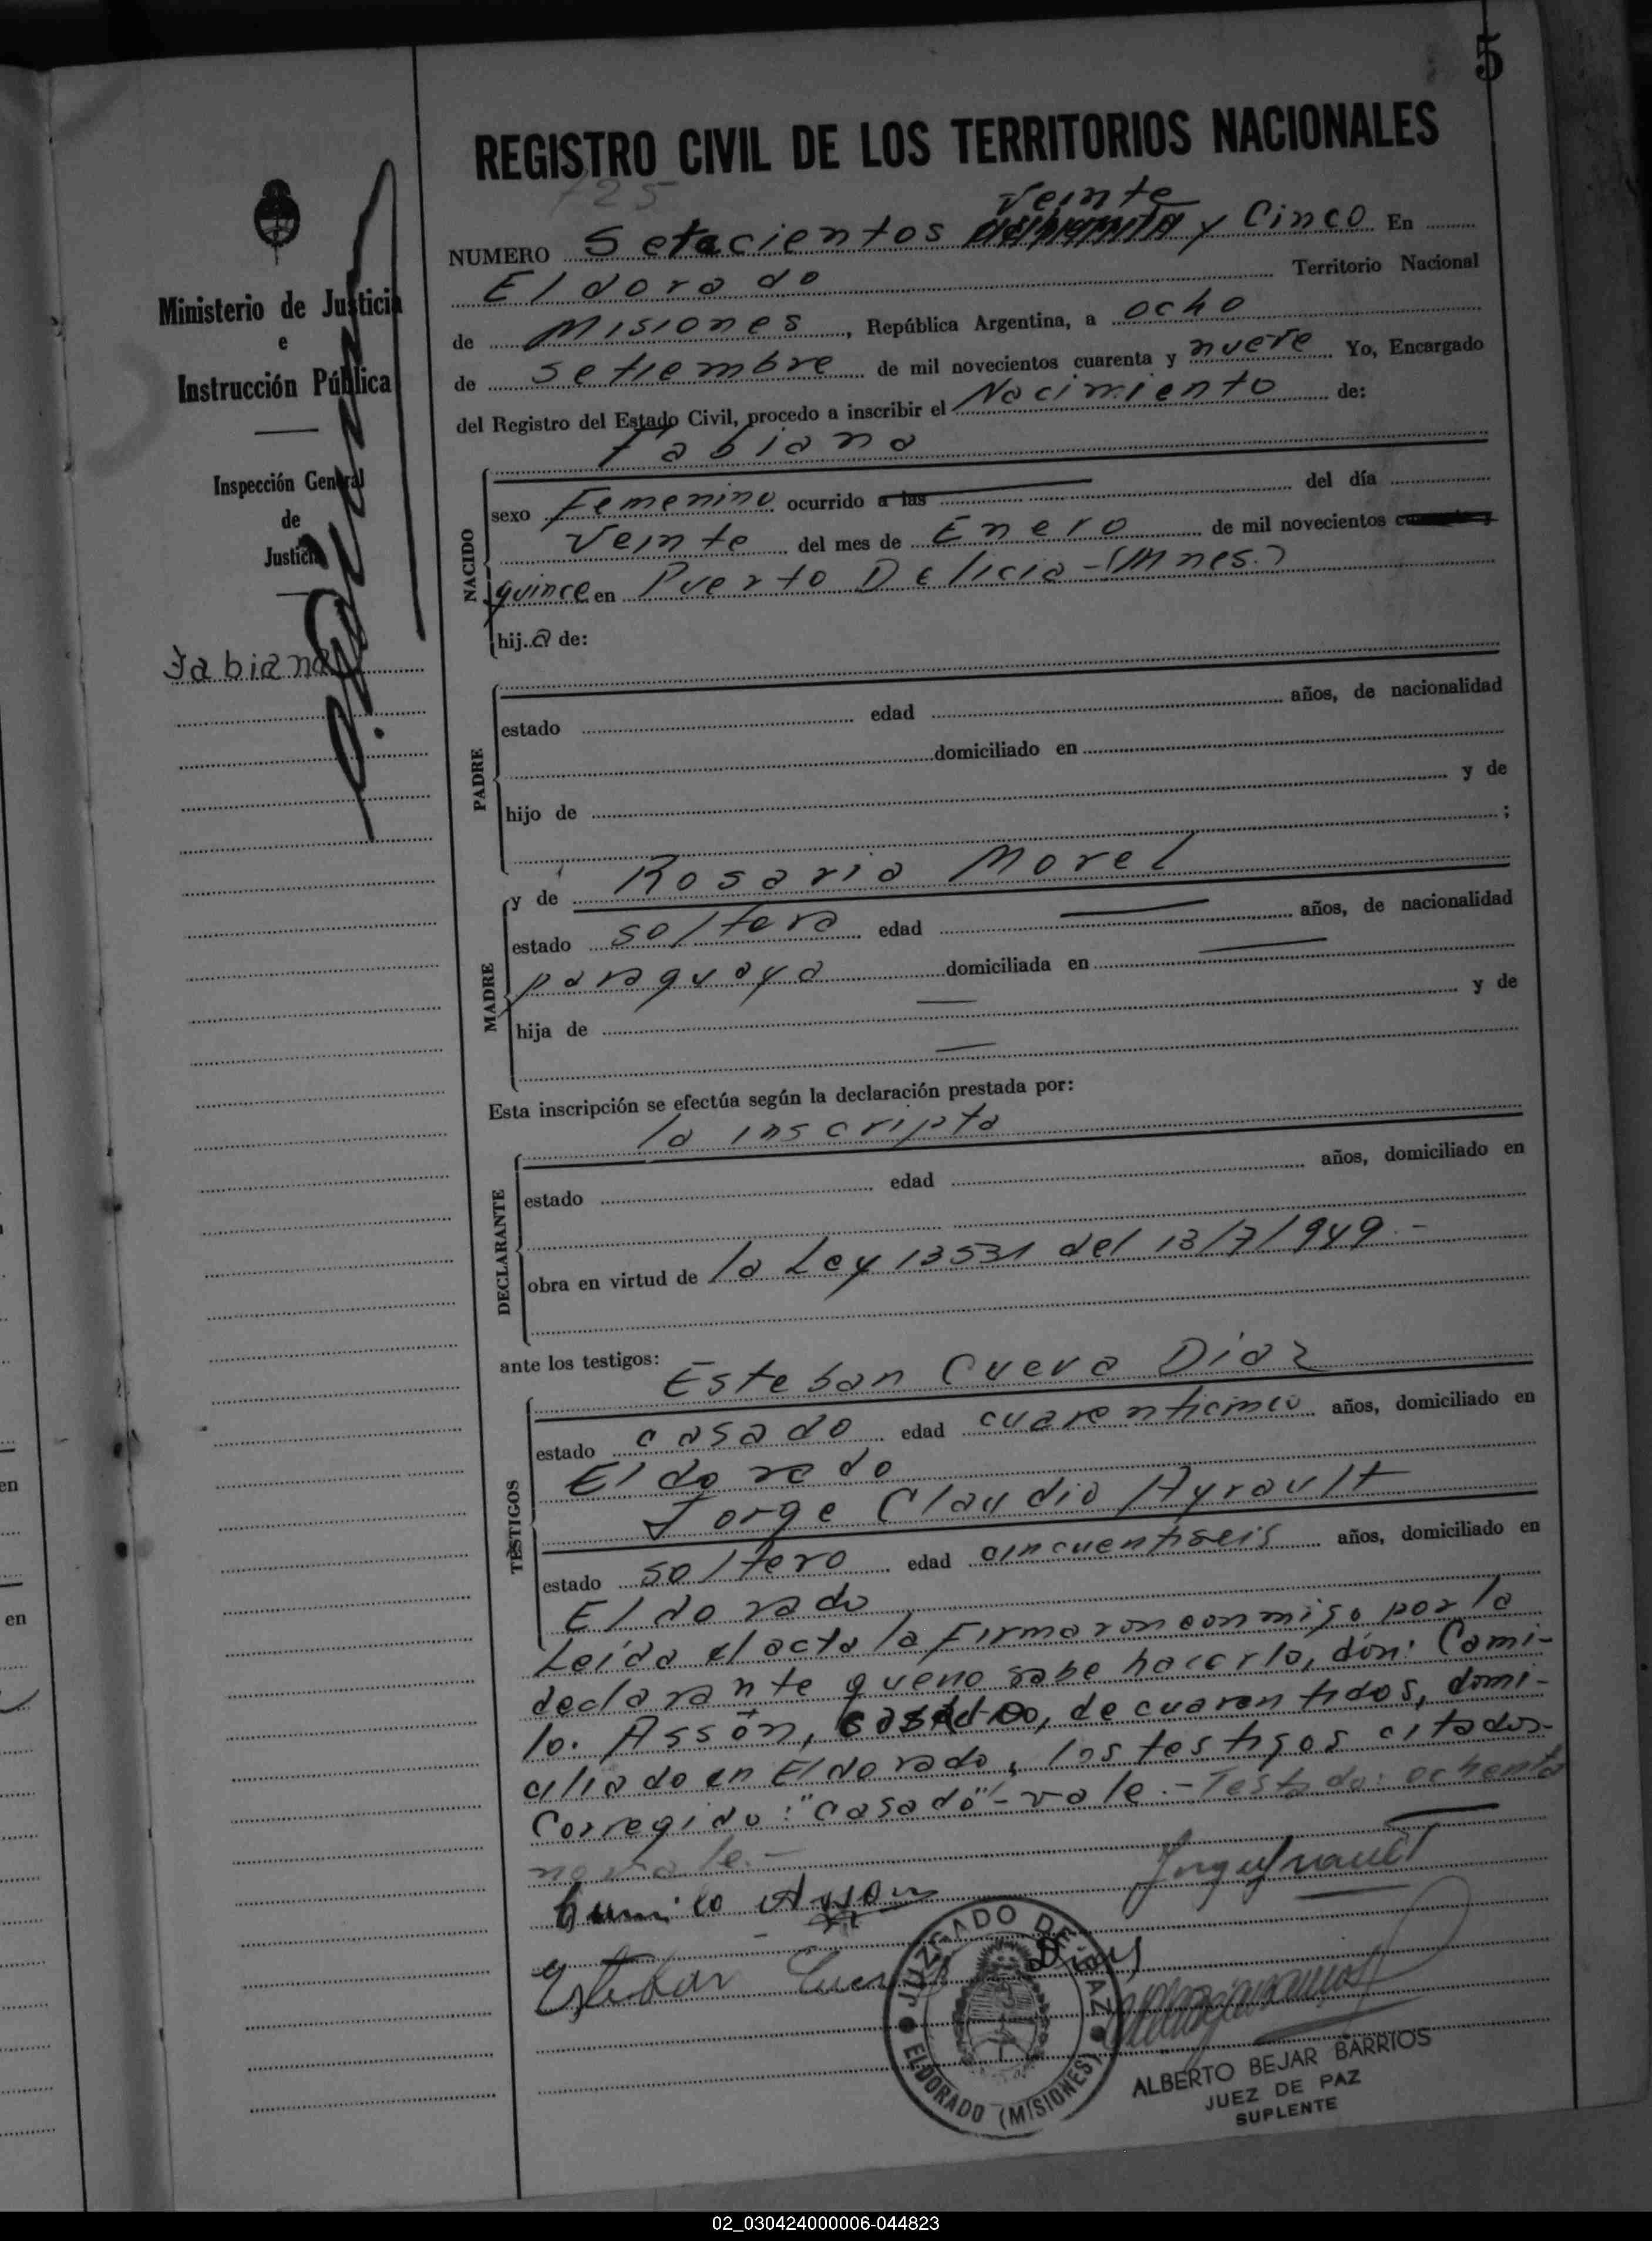 5
REGISTRO CIVIL DE LOS TERRITORIOS NACIONALES
725
veinte
NUMERO Setecientos y Cinco En
Eldorado Territorio Nacional
de Misiones, República Argentina, a ocho
de setiembre de mil novecientos cuarenta y nueve Yo, Encargado
del Registro del Estado Civil, procedo a inscribir el Nacimiento de:
Fabiana
NACIDO
sexo Femenino ocurrido a las del día
veinte del mes de Enero de mil novecientos
quince en Puerto Delicia - (Mnes.)
hija de:
PADRE
estado edad años, de nacionalidad
domiciliado en
hijo de y de
;
MADRE
y de Rosario Morel
estado soltera edad — años, de nacionalidad
paraguaya domiciliada en —
hija de — y de
—
Esta inscripción se efectúa según la declaración prestada por:
la inscripta
DECLARANTE
estado edad años, domiciliado en
obra en virtud de la Ley 13531 del 13/7/949 -
ante los testigos:
Esteban Cueva Diaz
TESTIGOS
estado casado edad cuarenticinco años, domiciliado en
Eldorado
Jorge Claudio Ayrault
estado soltero edad cincuentiseis años, domiciliado en
Eldorado
Leída el acta la Firmaron conmigo por la
declarante que no sabe hacerlo, dón: Cami-
lo. Assón, casado, de cuarentidos, domi-
ciliado en Eldorado, los testigos citados-
Corregido: "casado" - vale. - Testado: ochenta
no vale. -
Camilo Assón
Esteban Cueva Diaz
JUZGADO DE PAZ
ELDORADO (MISIONES)
ALBERTO BEJAR BARRIOS
JUEZ DE PAZ
SUPLENTE
Ministerio de Justicia
e
Instrucción Pública
Inspección General
de
Justicia
Fabiana
en
en
02_030424000006-044823